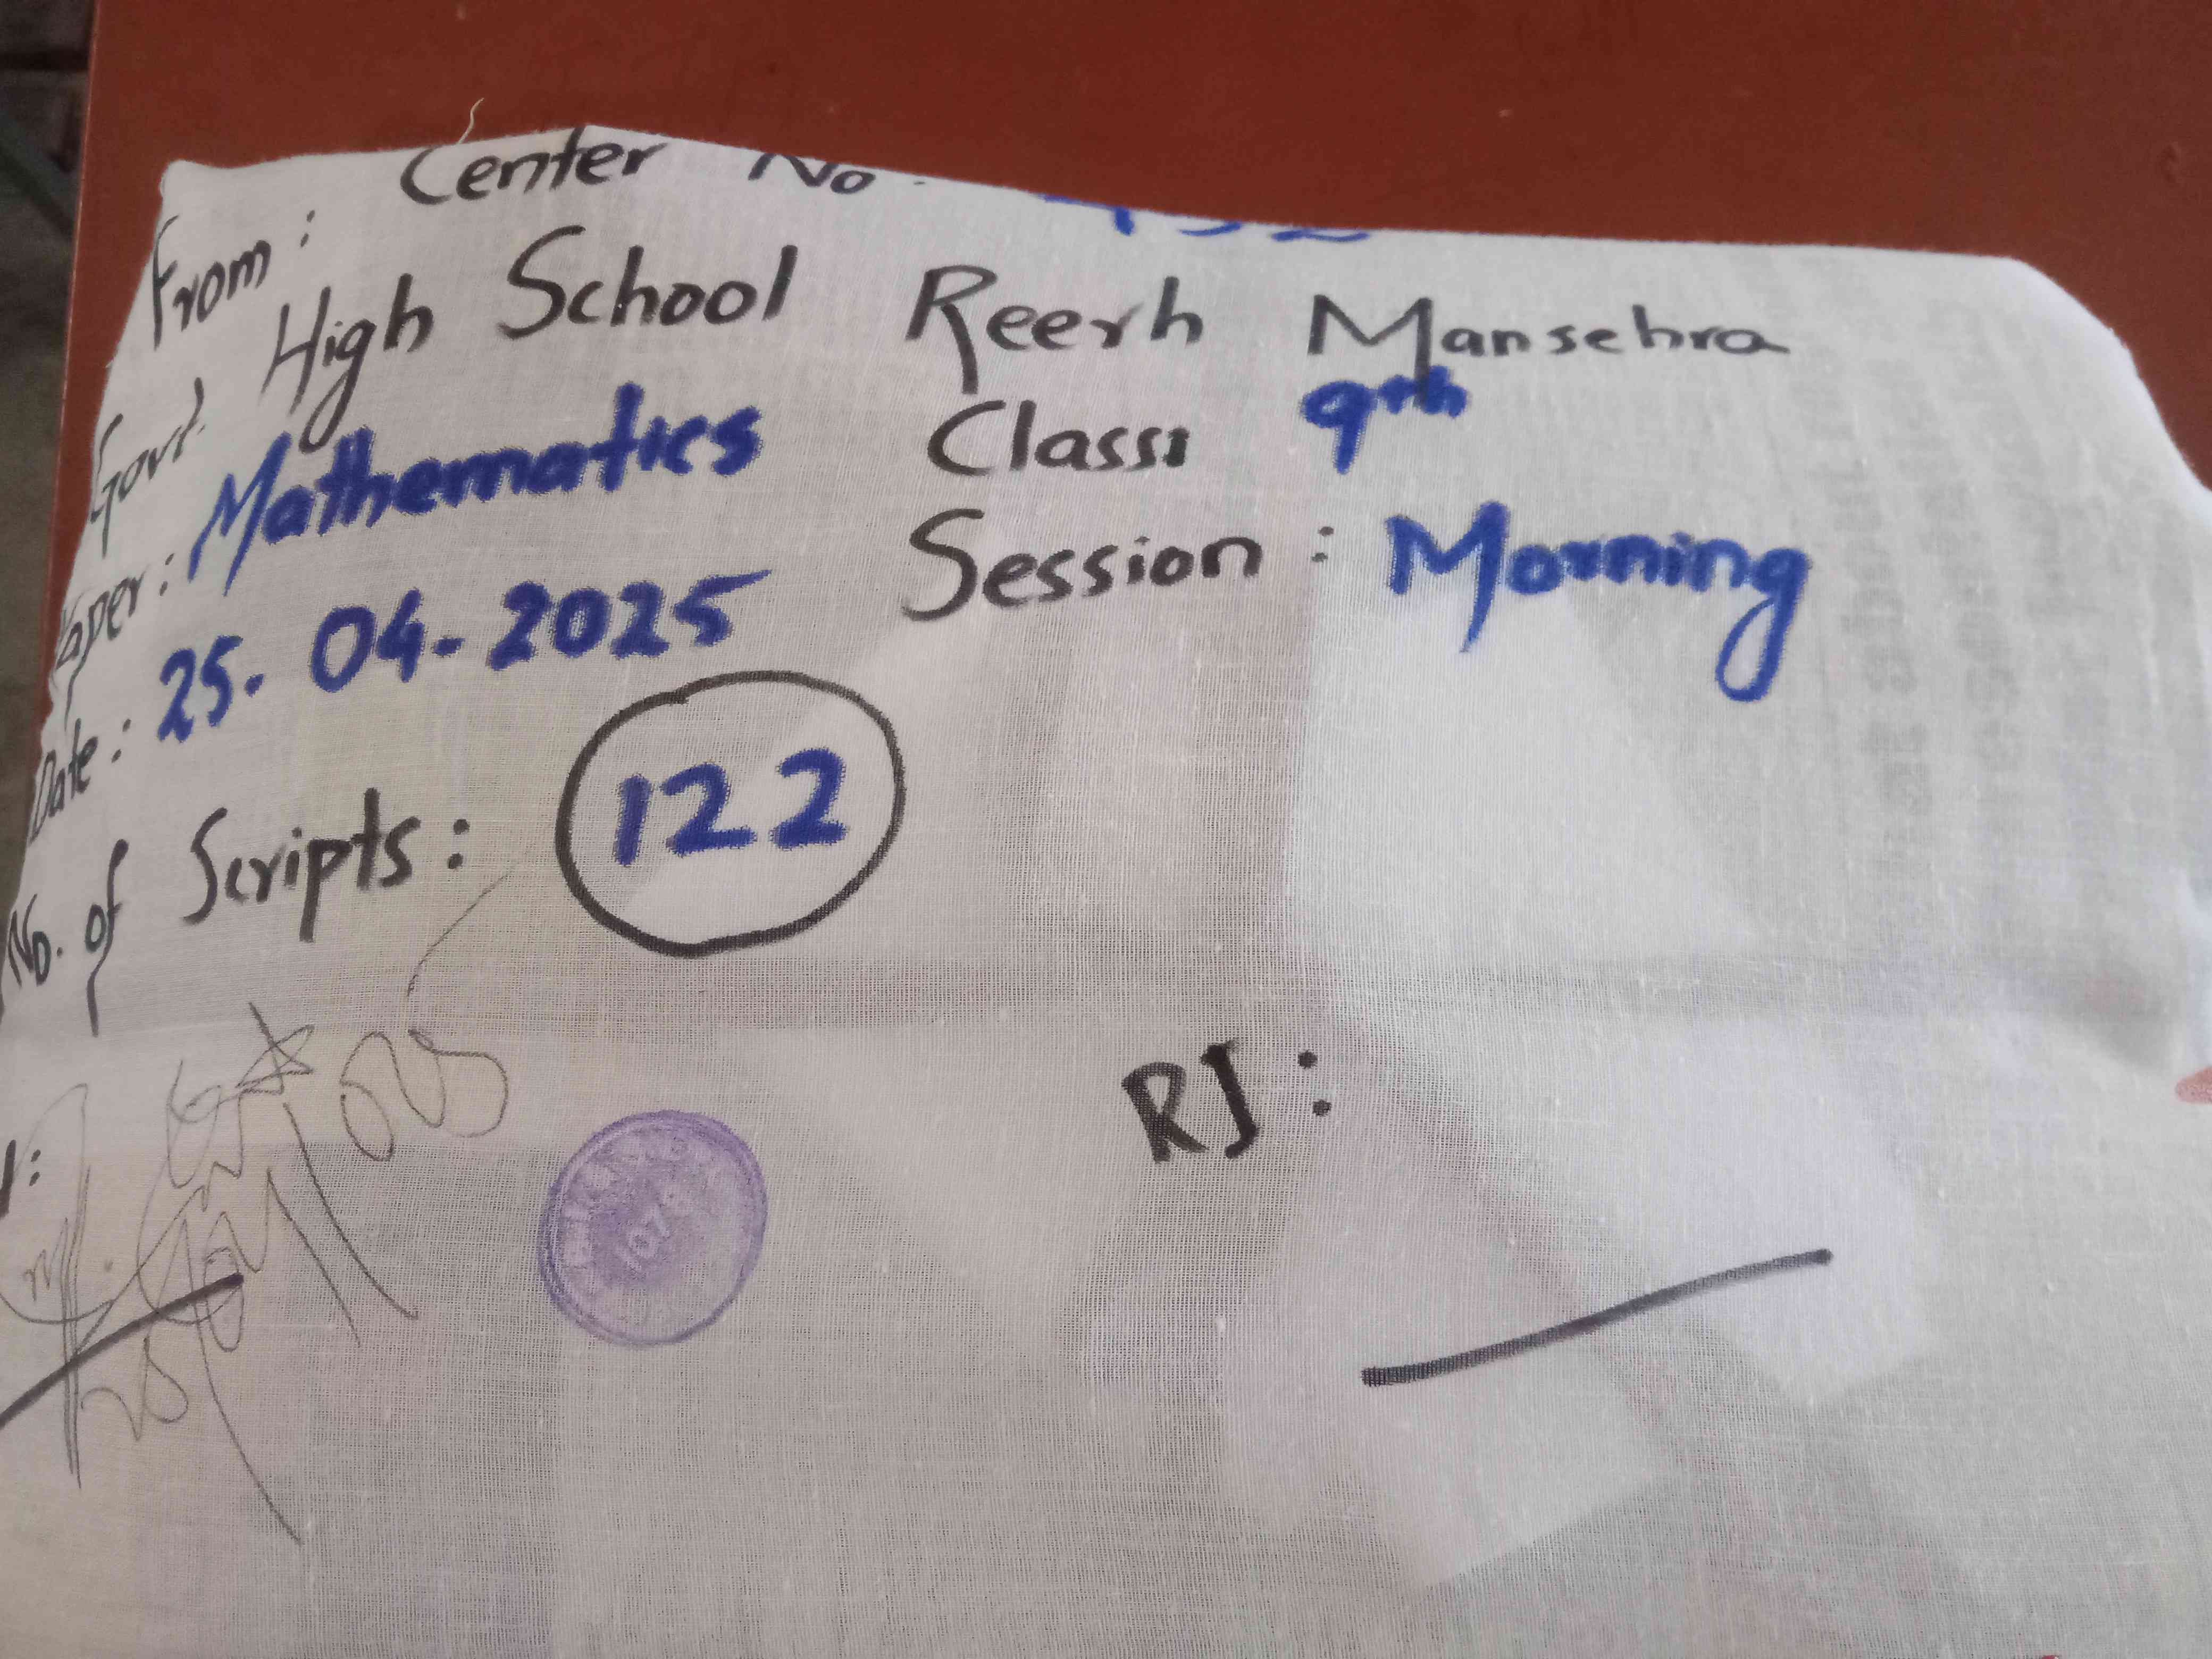 From: Center No.
Govt. High School Reerh Mansehra
Paper: Mathematics Class: 9th
Date: 25.04.2025 Session: Morning
No. of Scripts: 122
RI:
1078